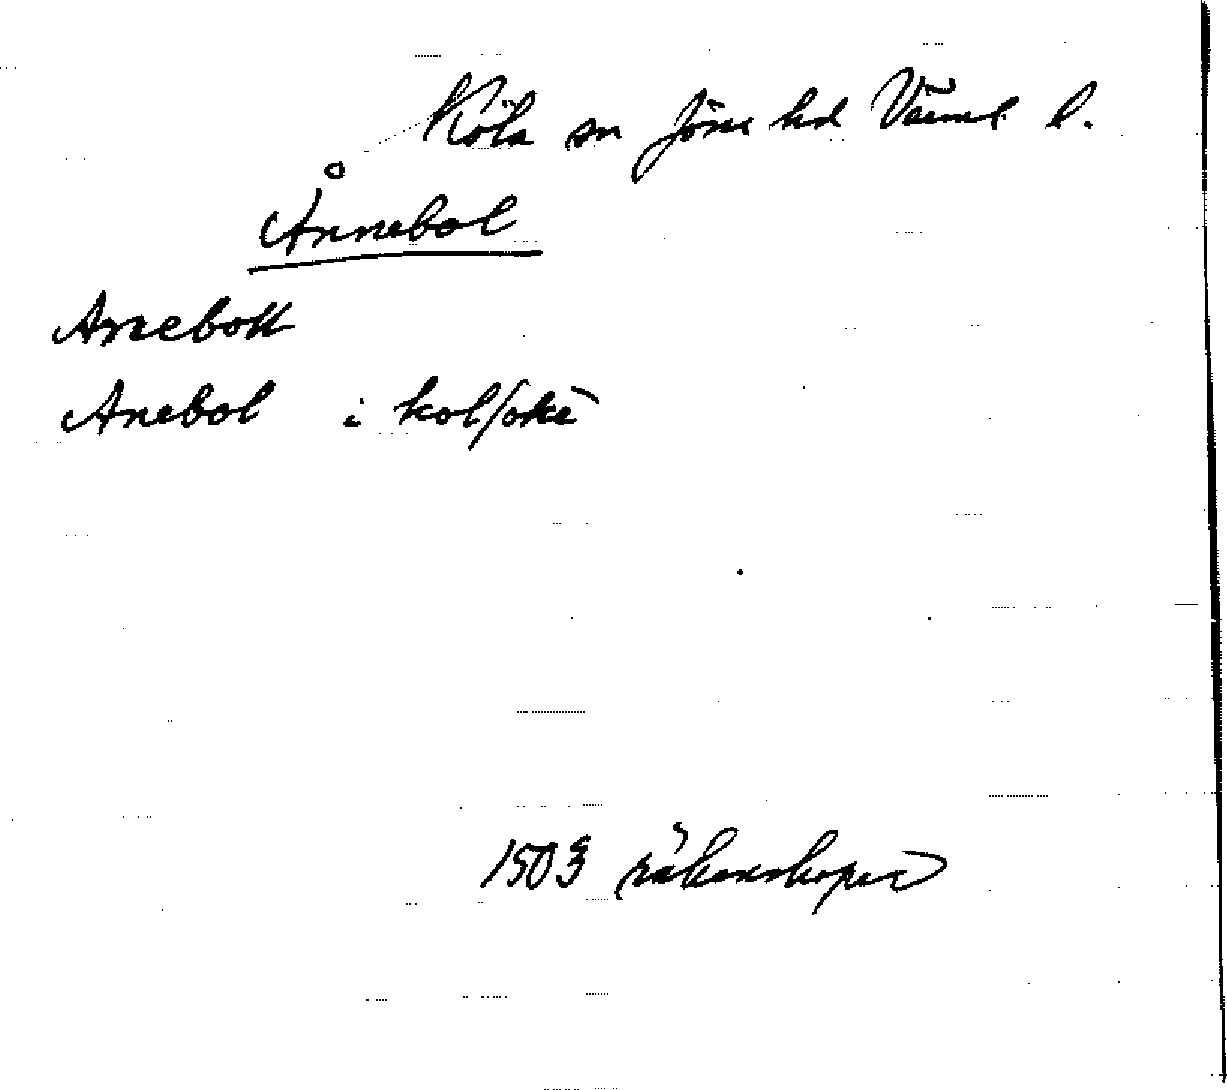 Köla sn Jösse hd Värml l.
Ånnebol
Annebott
Anebol i kolsokn
1503 räkenskaper